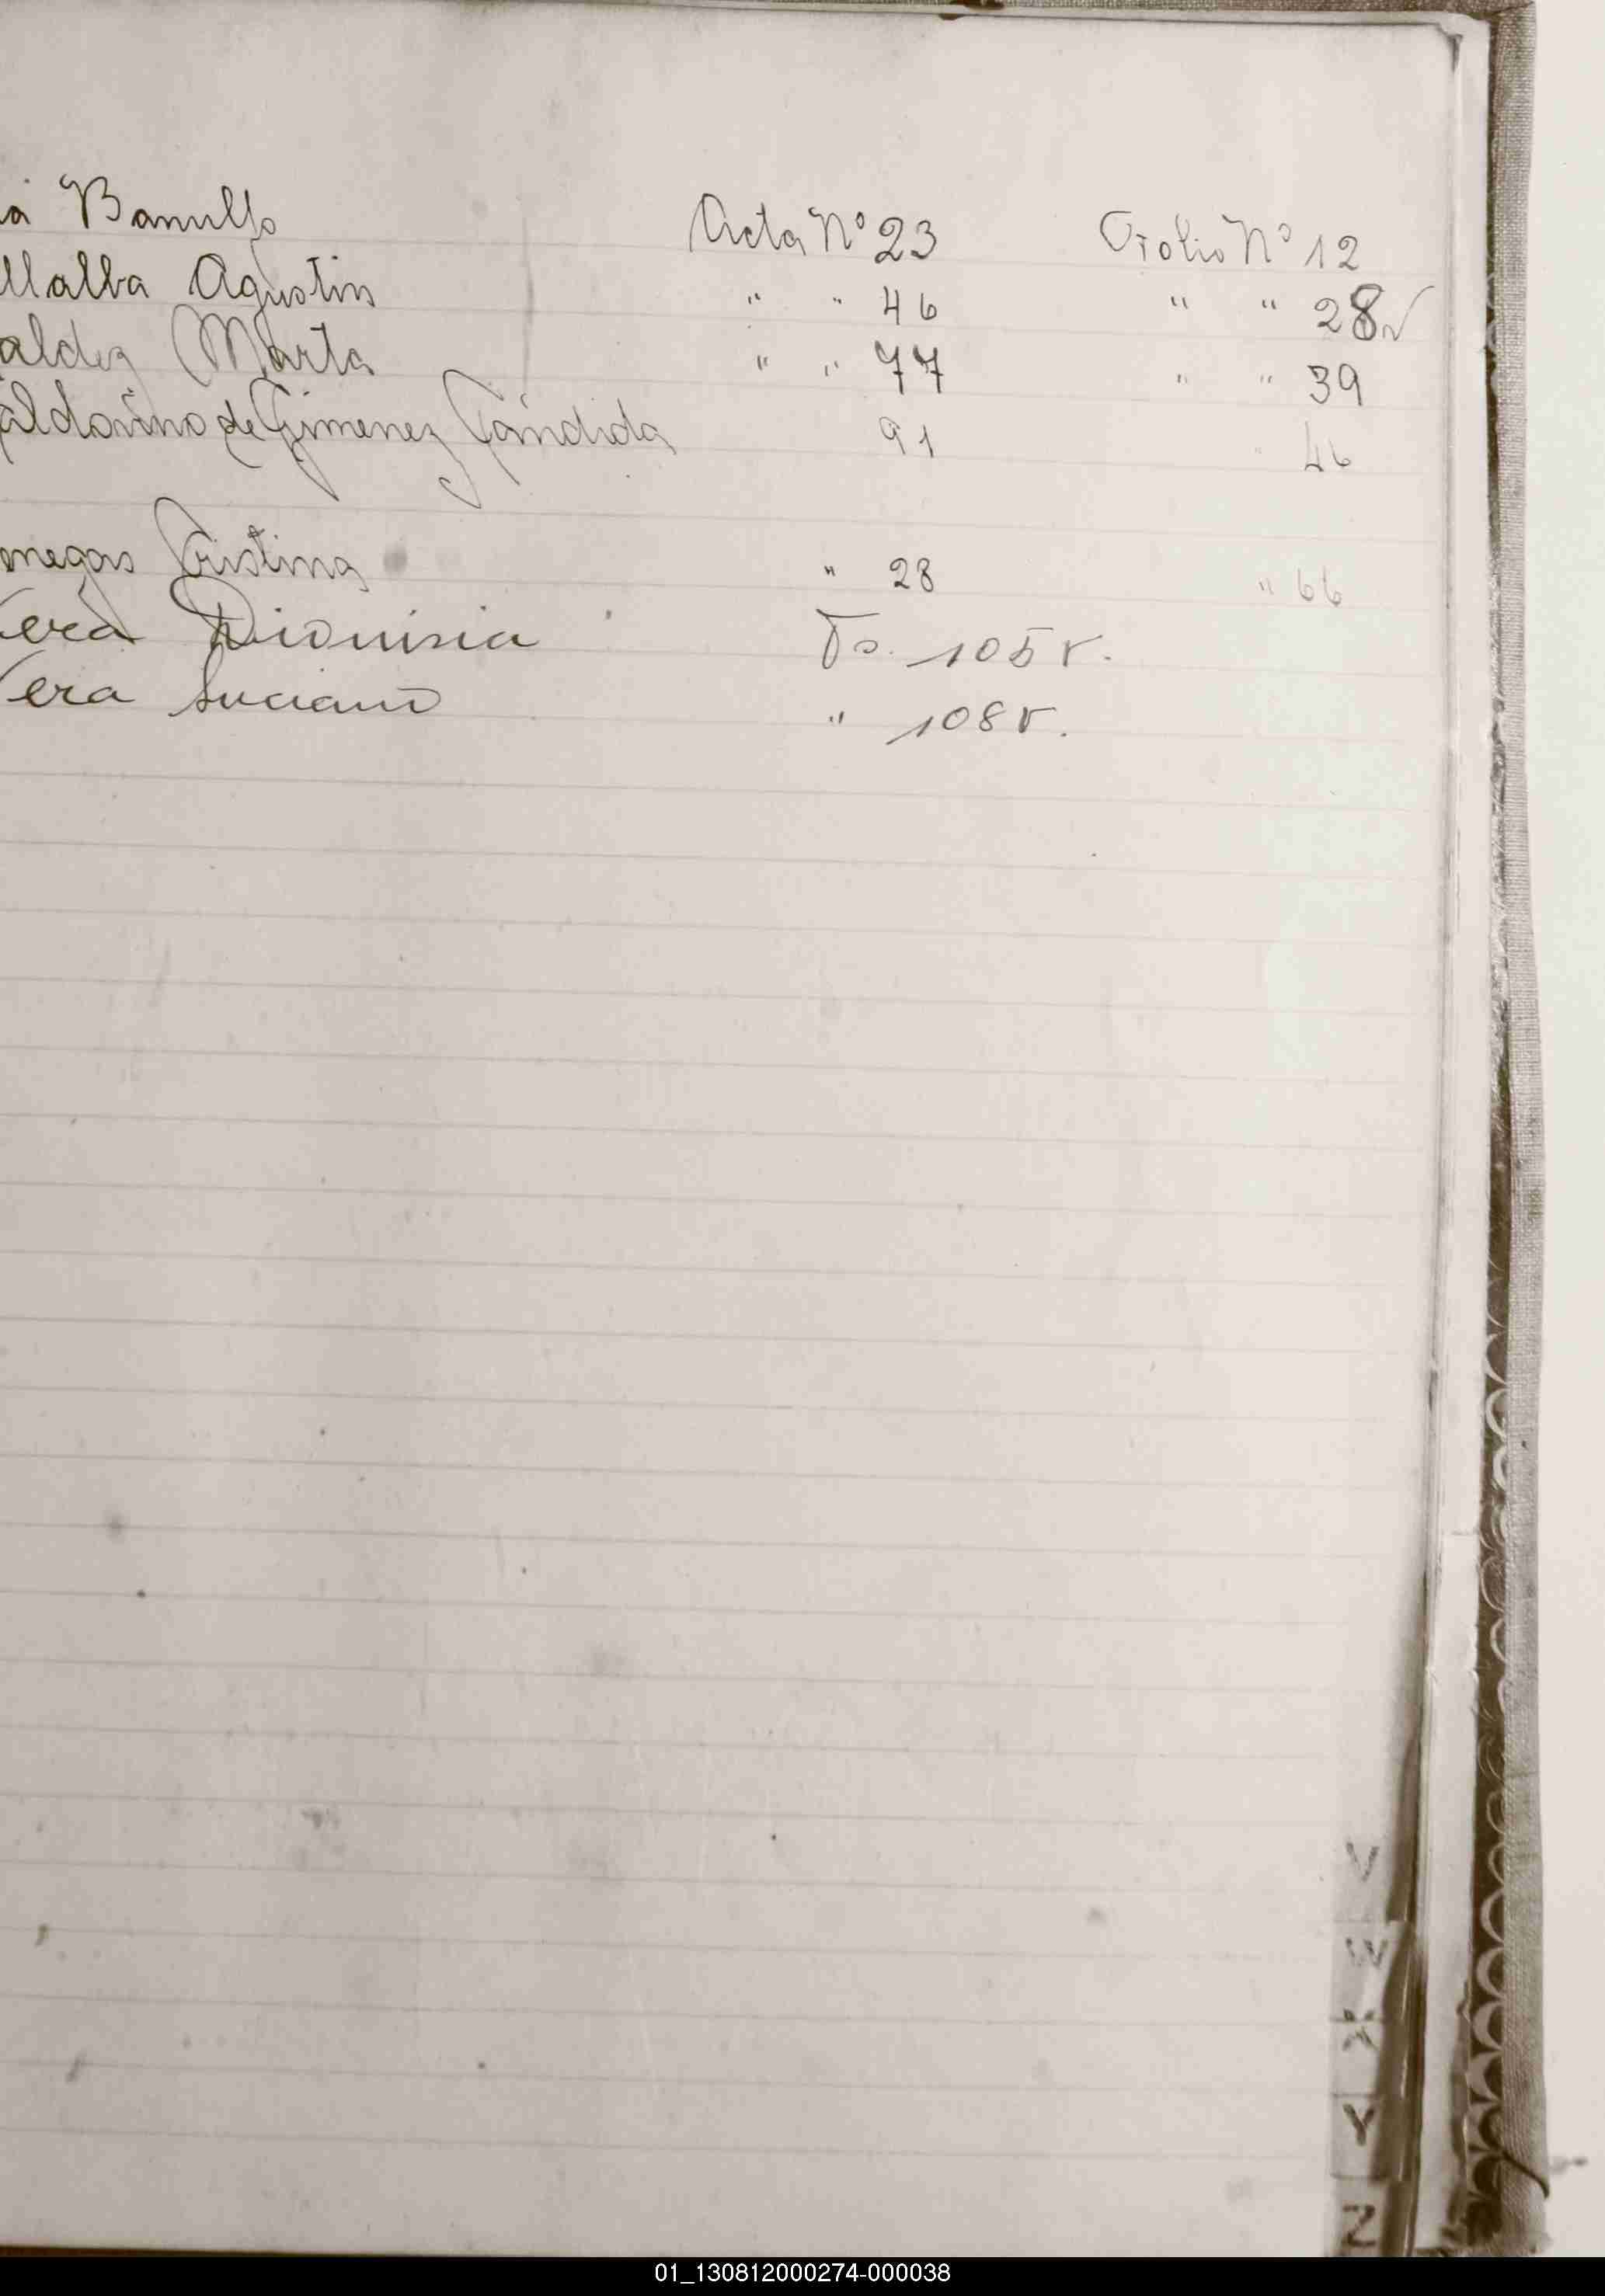 a Banulfo Acta Nº 23 Folio Nº 12
llalba Agustin " " 46 " " 28v
aldez Marta " " 77 " " 39
aldovino de Gimenez Cándida 91 46
enegas Cristina " 28 " 66
Vera Dionisia Fo. 105 v.
Vera Luciano " 108 v.
V
W
X
Y
Z
01_130812000274-000038